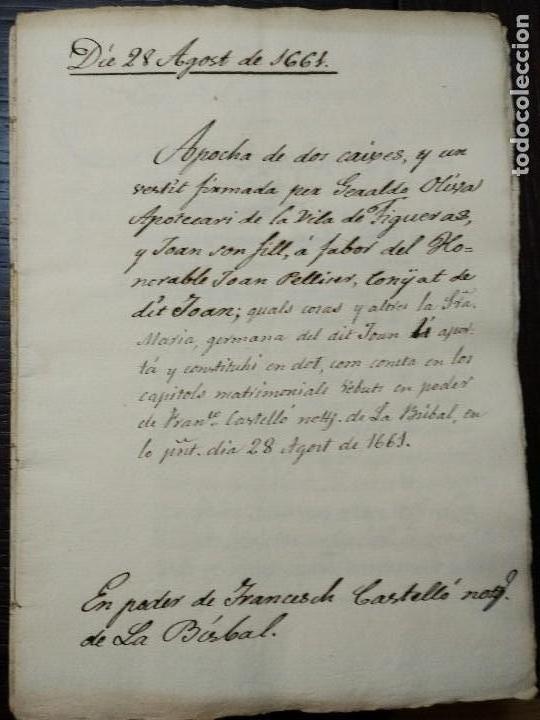 Die 28 Agost de 1661.
Apocha de dos caixes, y un
vestit firmada per Geraldo Oliva
Apotecari de la Vila de Figueras,
y Joan son fill, á fabor del Ho-
norable Joan Pellicer, Conÿat de
dit Joan; quals cosas y altres la Sra.
Maria, germana del dit Joan li apor-
tá y constituhi en dot, com consta en los
capitols matrimonials rebuts en poder
de Franco. Castelló notÿ. de La Bisbal, en
lo pnt. dia 28 Agost de 1661.
En poder de Francesch Castelló notÿ.
de La Bisbal.
todocoleccion